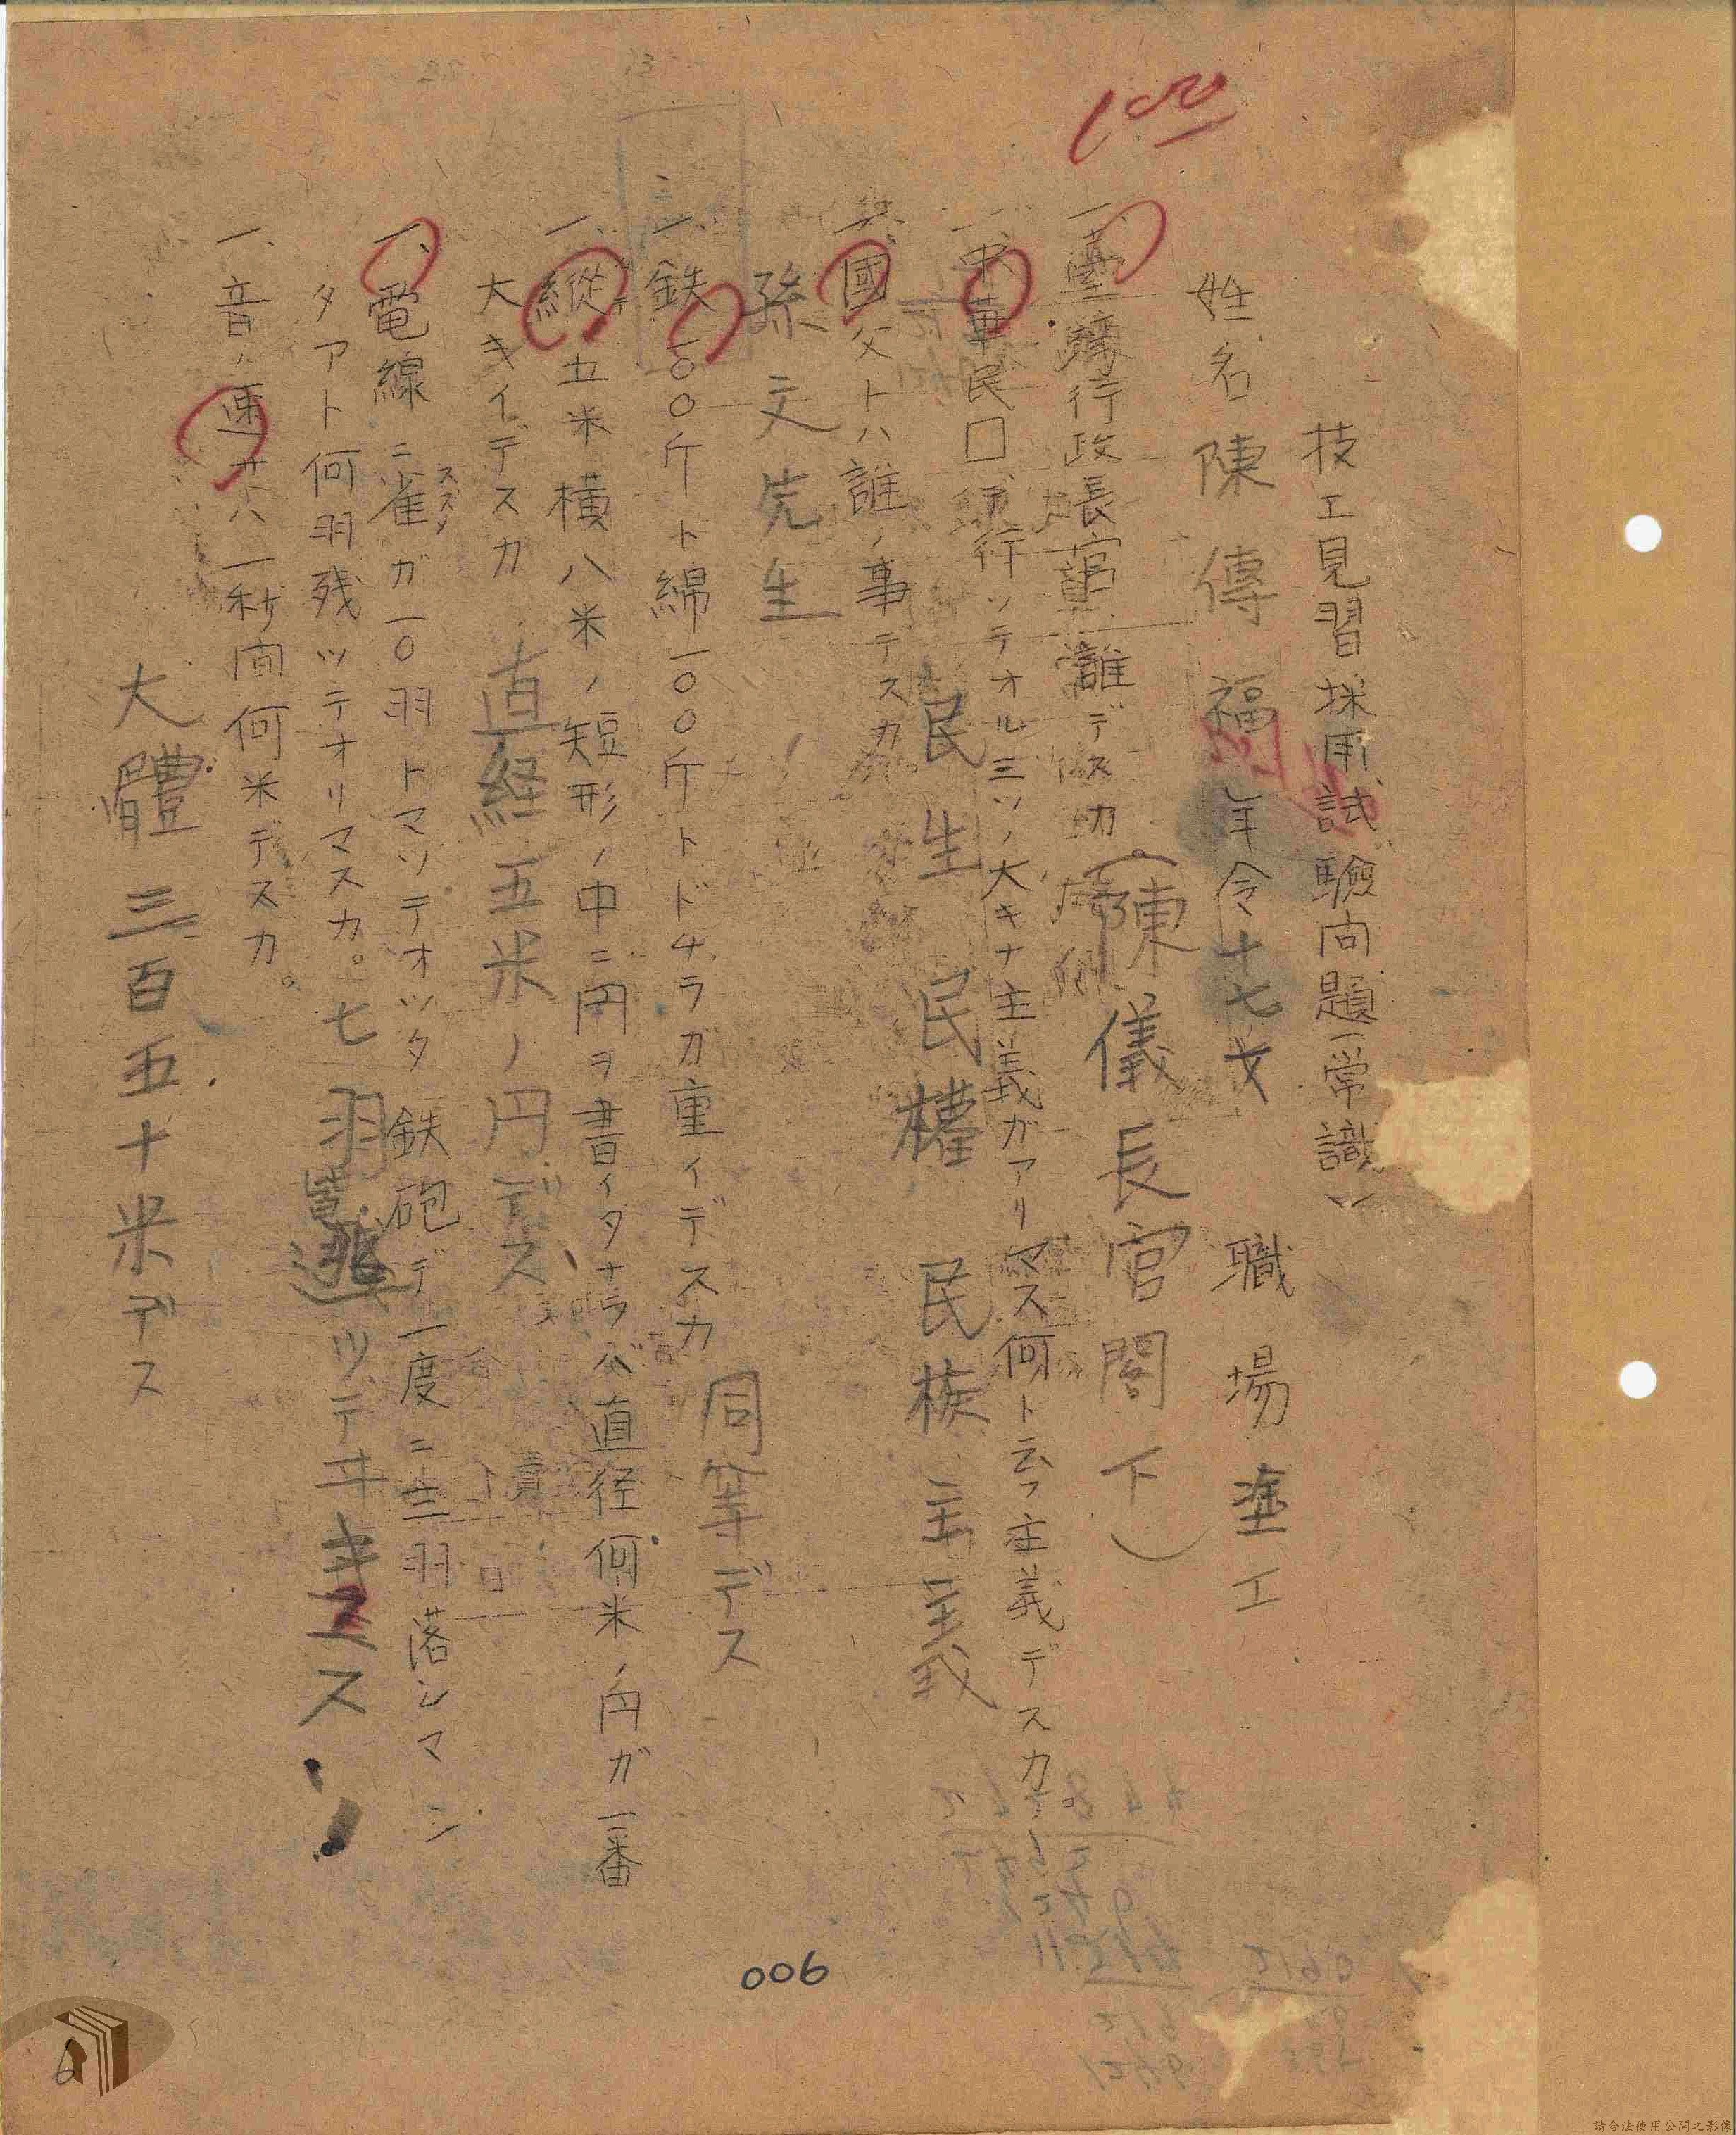 100
技工見習採用試驗問題「常識」
姓名 陳傳福 年令十七才 職場 塗工
一、臺灣行政長官 誰デスカ。(陳儀長官閣下)
一、中華民口デ行ツテオル三ツノ大キナ主義ガアリマス何ト云フ主義デスカ。
民生 民權 民族主義
一、國父トハ誰ノ事デスカ
孫文先生
一、鉄一〇〇斤ト綿一〇〇斤トドチラガ重イデスカ 同等デス
一、縱五米横八米ノ短形ノ中ニ円ヲ書イタナラバ直径何米ノ円ガ一番
大キイデスカ 直経五米ノ円デス
一、電線ニ雀ガ一〇羽トマツテオツタ鉄砲デ一度ニ三羽落シマシ
スズノ
タアト何羽残ツテオリマスカ。七羽 逃ツテヰキマス
一、音ノ速サハ一秒間何米デスカ。
大體三百五十米デス
006
6
請合法使用公開之影像